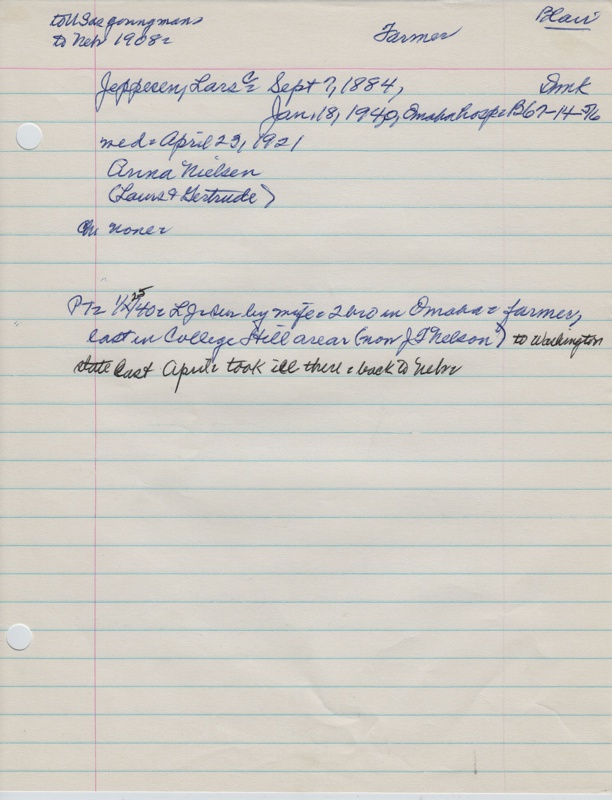 to US as young man
to Nebr 1908
Farmer
Blair
Jeppesen, Lars C = Sept 7, 1884,
Dmk
Jan. 18, 1940, Omaha hosp = B67-14-5/6
med = April 23, 1921
Anna Nielsen
(Laurs & Gertrude)
Ch: none
PT = 1/25/40 = LJ = sur by wife = 2 bro in Omaha = farmer,
last in College Hill area (now J T Nelson) to Washington
state last April = took ill there = back to Nebr